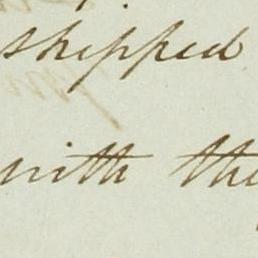 shipped
with the